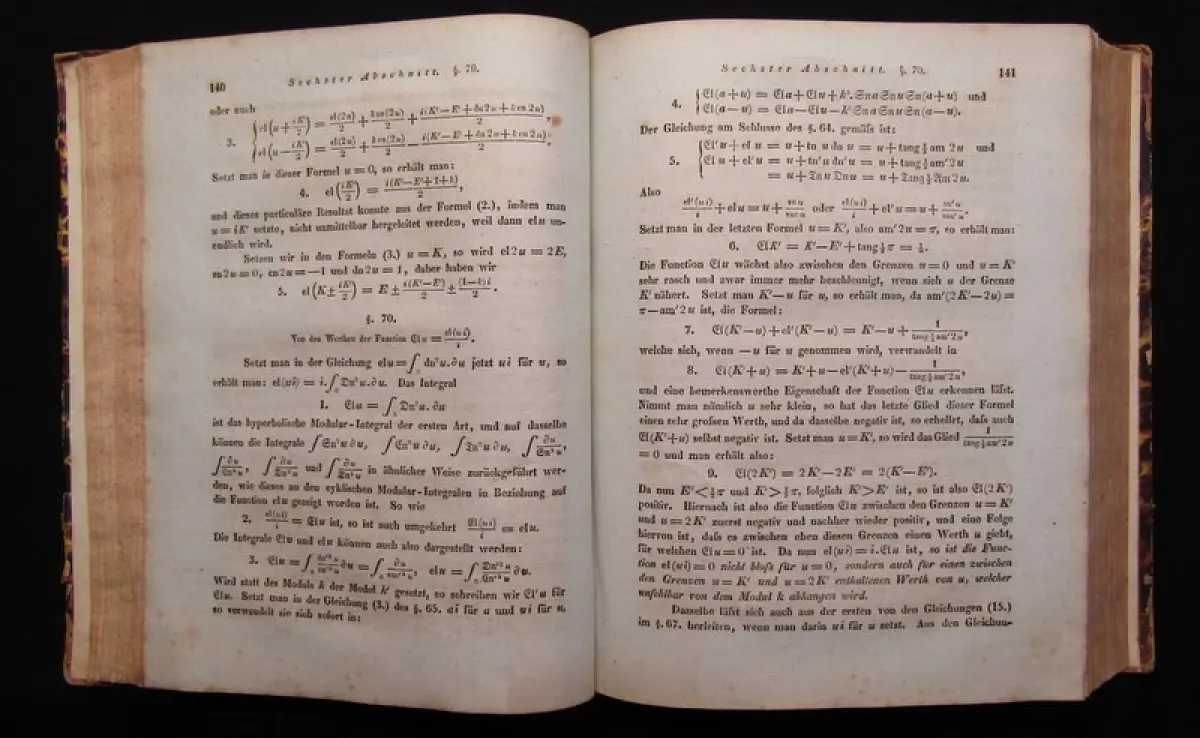 140
Sechster Abschnitt. §. 70.
oder auch
3. { el(u + iK'/2) = el(2u)/2 + k sn(2u)/2 + i(K'—E'+dn 2u+k cn 2u)/2,
el(u — iK'/2) = el(2u)/2 + k sn(2u)/2 — i(K'—E'+dn 2u+k cn 2u)/2.
Setzt man in dieser Formel u = 0, so erhält man:
4. el(iK'/2) = i(K'—E'+1+k)/2,
und dieses particuläre Resultat konnte aus der Formel (2.), indem man
u = iK' setzte, nicht unmittelbar hergeleitet werden, weil dann el u un-
endlich wird.
Setzen wir in den Formeln (3.) u = K, so wird el 2u = 2E,
sn 2u = 0, cn 2u = —1 und dn 2u = 1, daher haben wir
5. el(K ± iK'/2) = E ± i(K'—E')/2 ± (1—k)i/2.
§. 70.
Von den Werthen der Function El u = el(ui)/i.
Setzt man in der Gleichung el u = ∫₀ dn²u.∂u jetzt ui für u, so
erhält man: el(ui) = i.∫₀ Dn²u.∂u. Das Integral
1. El u = ∫₀ Dn²u.∂u
ist das hyperbolische Modular-Integral der ersten Art, und auf dasselbe
können die Integrale ∫Sn²u∂u, ∫Cn²u∂u, ∫Tn²u∂u, ∫∂u/Sn²u,
∫∂u/Cn²u, ∫∂u/Tn²u und ∫∂u/Dn²u in ähnlicher Weise zurückgeführt wer-
den, wie dieses an den cyklischen Modular-Integralen in Beziehung auf
die Function el u gezeigt worden ist. So wie
2. el(ui)/i = El u ist, so ist auch umgekehrt El(ui)/i = el u.
Die Integrale El u und el u können auch also dargestellt werden:
3. El u = ∫₀ dn'²u/cn'²u ∂u = ∫₀ ∂u/, el u = ∫₀ Dn'²u/Cn'²u ∂u.
Wird statt des Moduls k der Modul k' gesetzt, so schreiben wir El'u für
El u. Setzt man in der Gleichung (3.) des §. 65. ai für a und ui für u,
so verwandelt sie sich sofort in:
Sechster Abschnitt. §. 70.
141
4. { El(a+u) = El a + El u + k².Sn a Sn u Sn(a+u) und
El(a—u) = El a — El u — k².Sn a Sn u Sn(a—u).
Der Gleichung am Schlusse des §. 64. gemäss ist:
5. { El'u + el u = u + tn u dn u = u + tang ½ am 2u und
El u + el'u = u + tn'u dn'u = u + tang ½ am'2u
= u + Tn u Dn u = u + Tang ½ Am 2u.
Also
el'(ui)/i + el u = u + sn u/snc u oder el(ui)/i + el'u = u + sn'u/snc'u.
Setzt man in der letzten Formel u = K', also am'2u = π, so erhält man:
6. El K' = K'—E' + tang ½π = ⅟₀.
Die Function El u wächst also zwischen den Grenzen u = 0 und u = K'
sehr rasch und zwar immer mehr beschleunigt, wenn sich u der Grenze
K' nähert. Setzt man K'—u für u, so erhält man, da am'(2K'—2u) =
π—am'2u ist, die Formel:
7. El(K'—u) + el'(K'—u) = K'—u + 1/tang ½ am'2u,
welche sich, wenn —u für u genommen wird, verwandelt in
8. El(K'+u) = K'+u—el'(K'+u) — 1/tang ½ am'2u,
und eine bemerkenswerthe Eigenschaft der Function El u erkennen läfst.
Nimmt man nämlich u sehr klein, so hat das letzte Glied dieser Formel
einen sehr grofsen Werth, und da dasselbe negativ ist, so erhellet, dafs auch
El(K'+u) selbst negativ ist. Setzt man u = K', so wird das Glied 1/tang ½ am'2u
= 0 und man erhält also:
9. El(2K') = 2K'—2E' = 2(K'—E').
Da nun E'<½π und K'>½π, folglich K'>E' ist, so ist also El(2K')
positiv. Hiernach ist also die Function El u zwischen den Grenzen u = K'
und u = 2K' zuerst negativ und nachher wieder positiv, und eine Folge
hiervon ist, dafs es zwischen eben diesen Grenzen einen Werth u giebt,
für welchen El u = 0 ist. Da nun el(ui) = i.El u ist, so ist die Func-
tion el(ui) = 0 nicht blofs für u = 0, sondern auch für einen zwischen
den Grenzen u = K' und u = 2K' enthaltenen Werth von u, welcher
unfehlbar von dem Modul k abhangen wird.
Dasselbe läfst sich auch aus der ersten von den Gleichungen (15.)
im §. 67. herleiten, wenn man darin ui für u setzt. Aus den Gleichun-